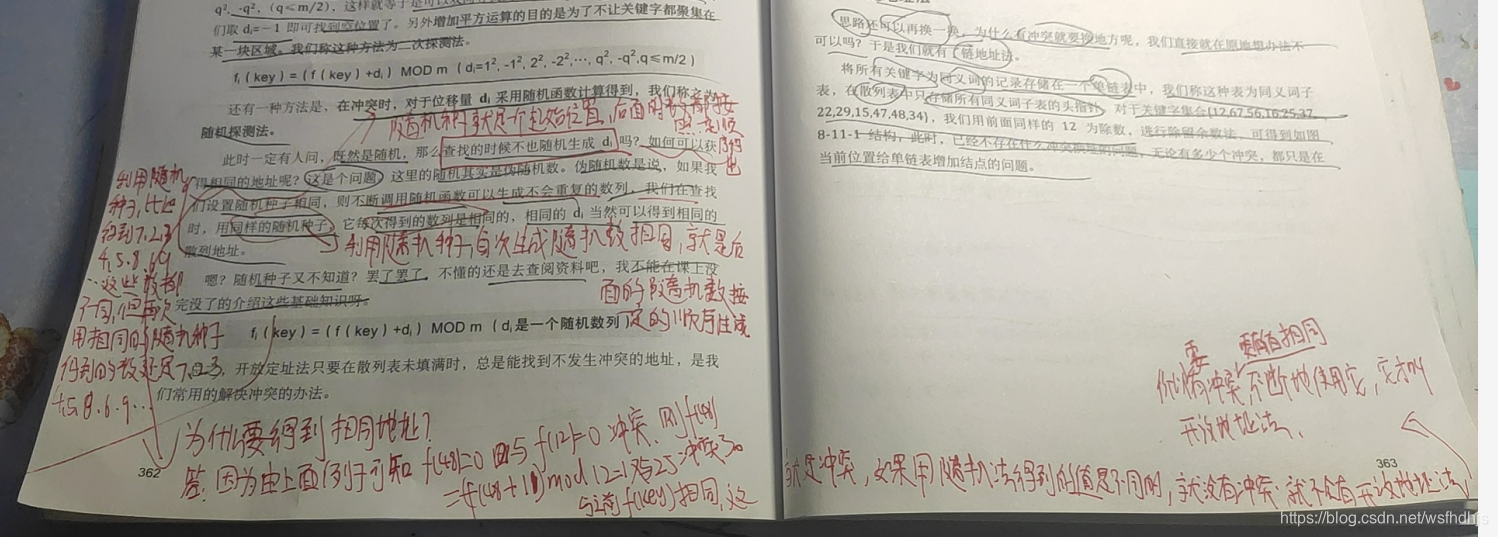 们取 di=－1 即可找到空位置了。另外增加平方运算的目的是为了不让关键字都聚集在
某一块区域。我们称这种方法为二次探测法。
fi(key)=(f(key)+di) MOD m (di=1²,-1²,2²,-2²,…,q²,-q²,q≤m/2)
还有一种方法是，在冲突时，对于位移量 di 采用随机函数计算得到，我们称之为
随机探测法。
随机种子就是个起始位置，后面的
此时一定有人问，既然是随机，那么查找的时候不也随机生成 di 吗？如何可以获
得相同的地址呢？这是个问题。这里的随机其实是伪随机数。伪随机数是说，如果我
们设置随机种子相同，则不断调用随机函数可以生成不会重复的数列，我们在查找
时，用同样的随机种子，它每次得到的数列是相同的，相同的 di 当然可以得到相同的
散列地址。
利用随机种子,每次生成随机数相同,就是后
面的随机数按
一定的顺序生成
嗯？随机种子又不知道？罢了罢了，不懂的还是去查阅资料吧，我不能在课上没
完没了的介绍这些基础知识呀。
fi(key)=(f(key)+di) MOD m (di是一个随机数列)
开放定址法只要在散列表未填满时，总是能找到不发生冲突的地址，是我
们常用的解决冲突的办法。
利用随机
种子,比如
得到7.2.3
这些数都
不同,但再次
用相同的随机种子
得到的数还是7.2.3
为什么要得到相同地址?
答:因为由上面例子可知 f(48)=0 与 f(12)=0 冲突,则f(48)
=f(48+1) mod 12=1 与25冲突
与之前f(key)相同,这
362
思路还可以再换一换，为什么有冲突就要换地方呢，我们直接就在原地想办法不
可以吗？于是我们就有了链地址法。
将所有关键字为同义词的记录存储在一个单链表中，我们称这种表为同义词子
表，在散列表中只存储所有同义词子表的头指针。对于关键字集合{12,67,56,16,25,37,
22,29,15,47,48,34}，我们用前面同样的 12 为除数，进行除留余数法，可得到如图
8-11-1 结构，此时，已经不存在什么冲突换址的问题，无论有多少个冲突，都只是在
当前位置给单链表增加结点的问题。
冲突 不断地使用它,它才叫
开放地址法.
就是冲突,如果用随机法得到的值是不同的,就没有冲突.就不会有开放地址法
363
https://blog.csdn.net/wsfhdhjs